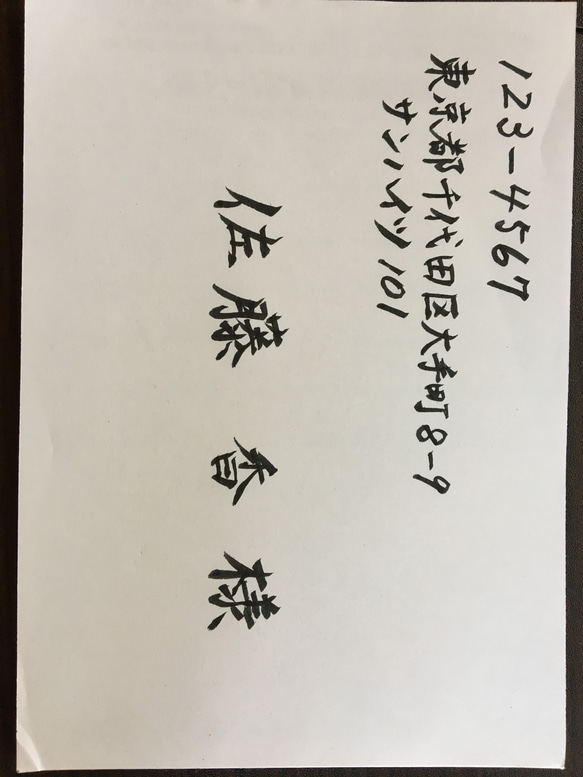 123-4567
東京都千代田区大手町8-9
サンハイツ101
佐藤 香 様